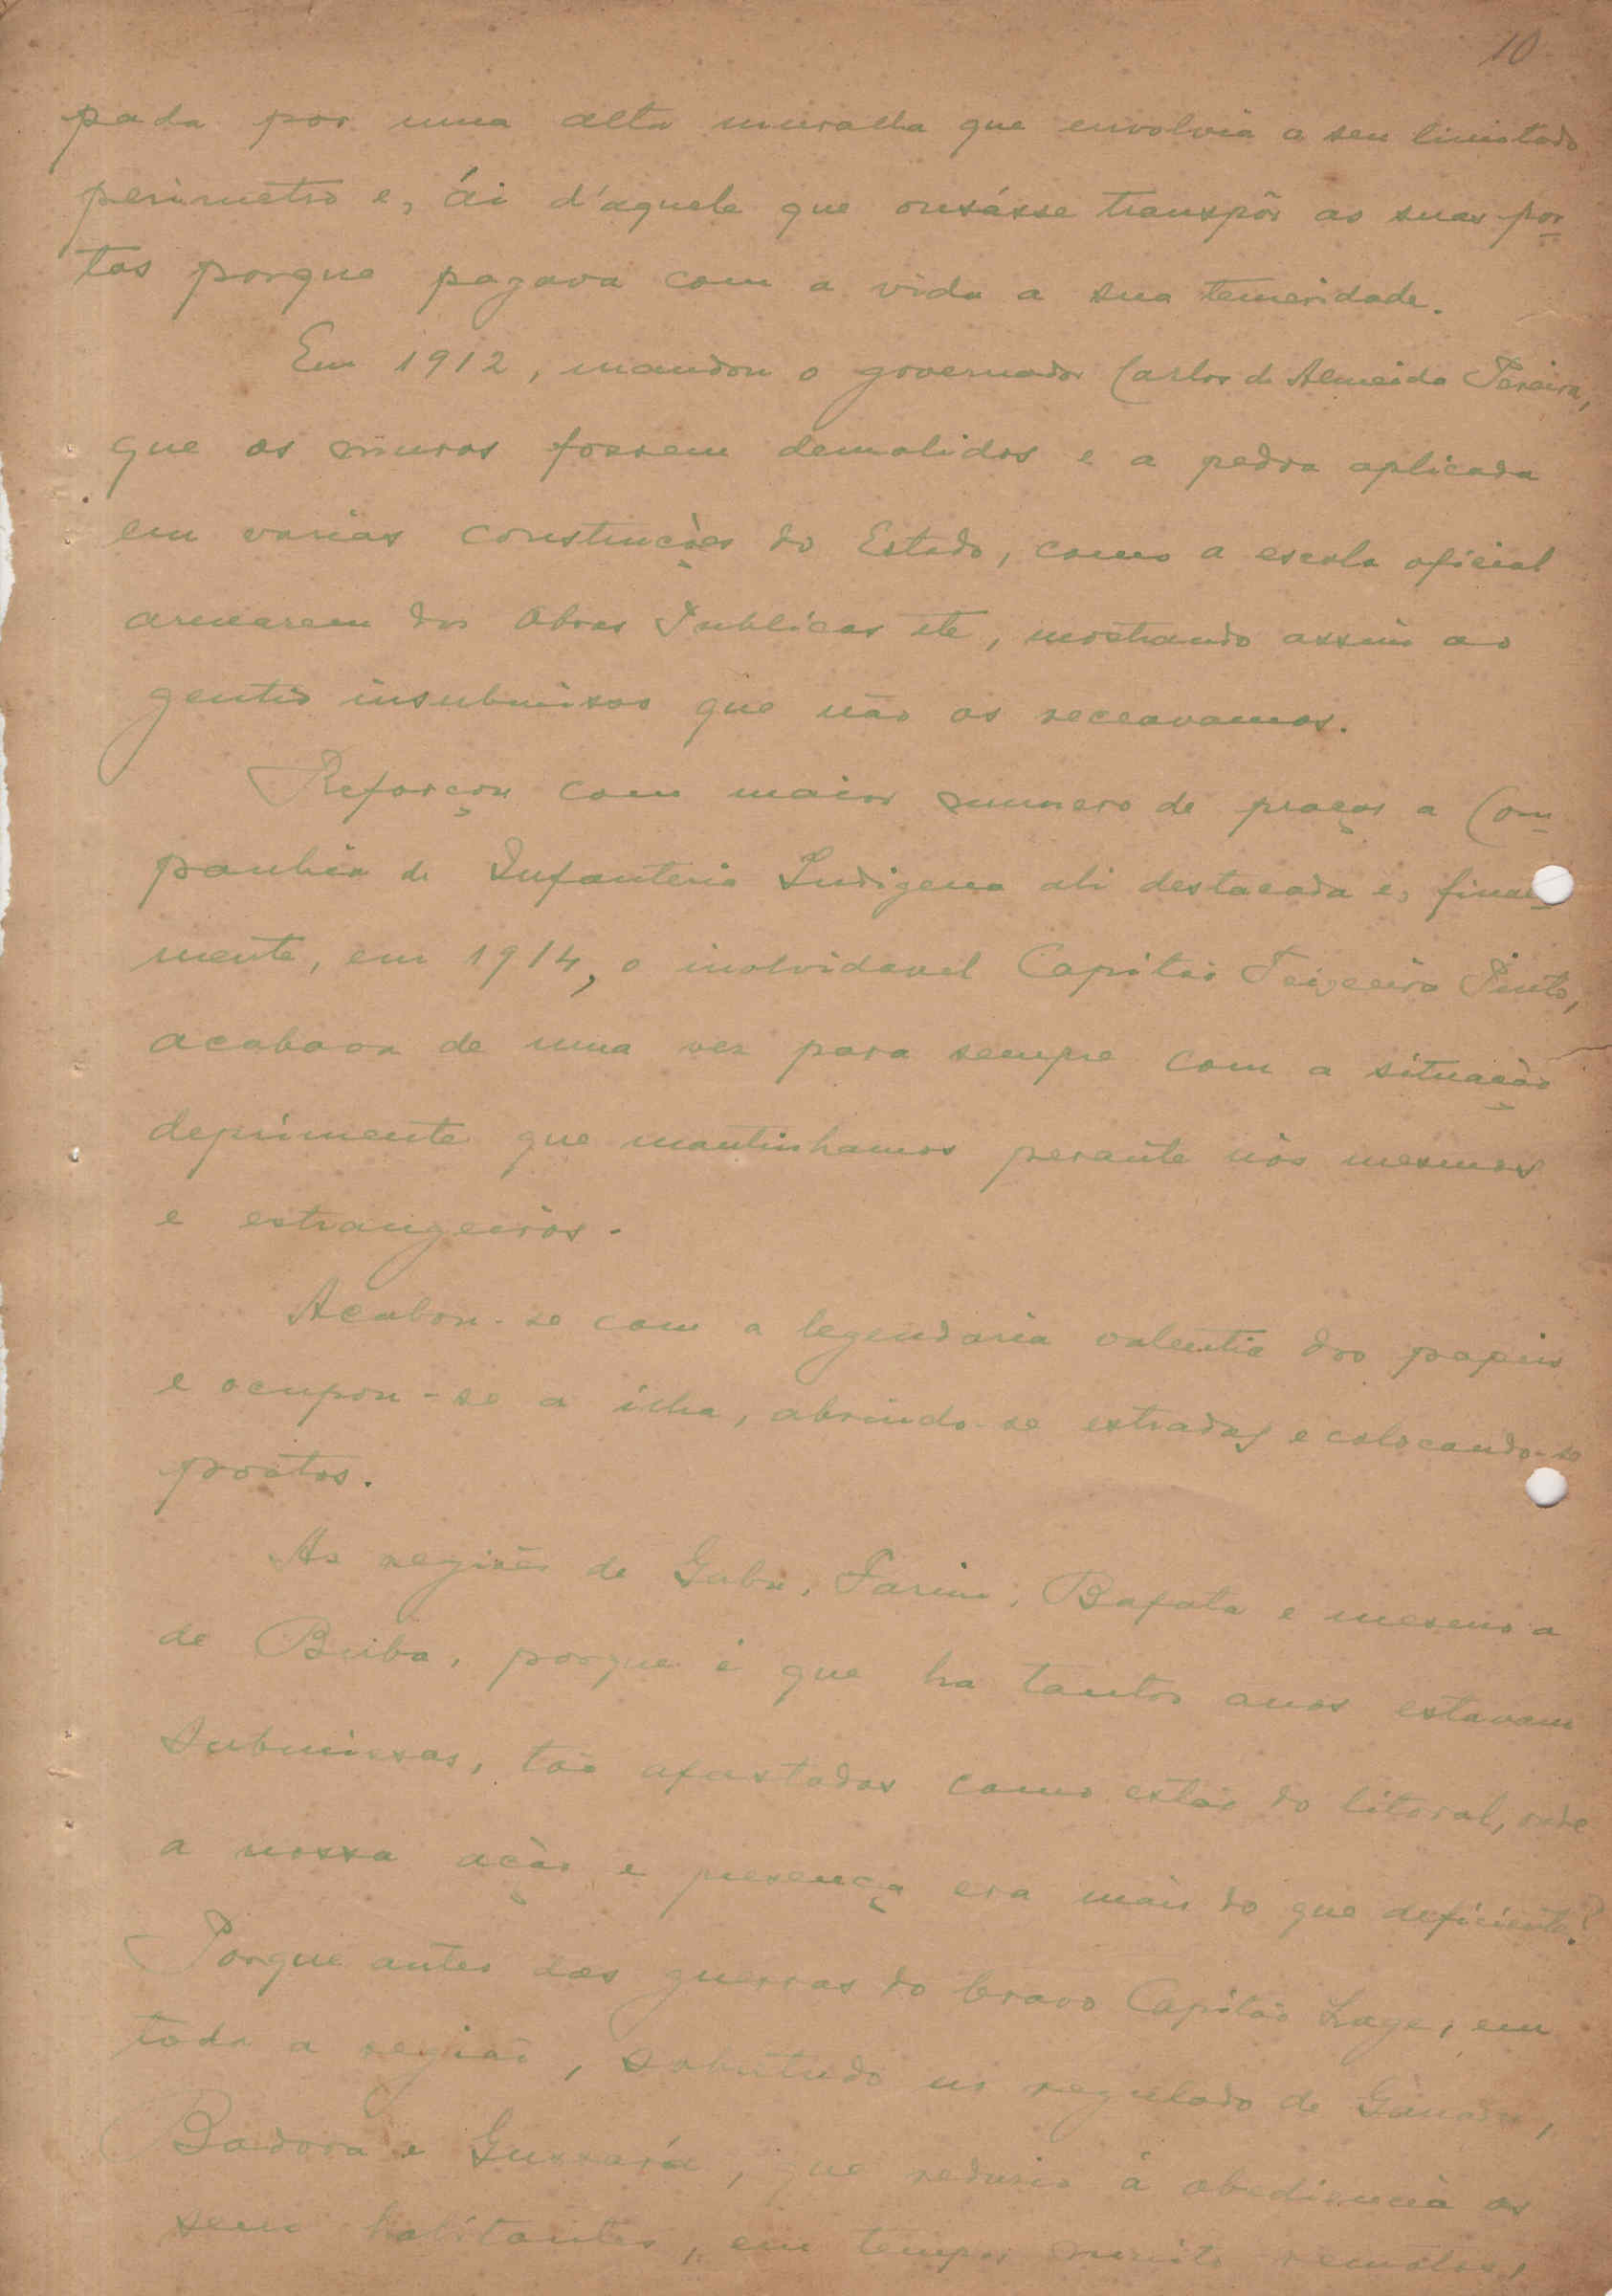 10
pada por uma alta muralha que envolvia o seu limitado
perimetro e, ái d'aquele que ousásse transpôr as suas por
tas porque pagava com a vida a sua temeridade.
Em 1912, mandou o governador Carlos de Almeida Pereira,
que os muros fossem demolidos e a pedra aplicada
em varias construcções do Estado, como a escola oficial
armazem das Obras Publicas etc, mostrando assim ao
gentio insubmisso que não os receavamos.
Reforçou com maior numero de praças a Com
panhia de Infanteria Indigena ali destacada e, final
mente, em 1914, o inolvidavel Capitão Teixeira Pinto,
acabava de uma vez para sempre com a situação
deprimente que mantinhamos perante nós mesmos
e estrangeiros.
Acabou-se com a legendaria valentia dos papeis
e ocupou-se a ilha, abrindo-se estradas e colocando-se
postos.
As regiões de Gabu, Farim, Bafata e mesmo a
de Buba, porque é que ha tantos anos estavam
submissas, tão afastadas como estão do litoral, onde
a nossa ação e presença era mais do que deficiente?
Porque antes das guerras do bravo Capitão Lage, em
toda a região, sobretudo no regulado de
Badora e Gussará, que reduziu á obediencia os
seus habitantes, em tempos muito remotos,